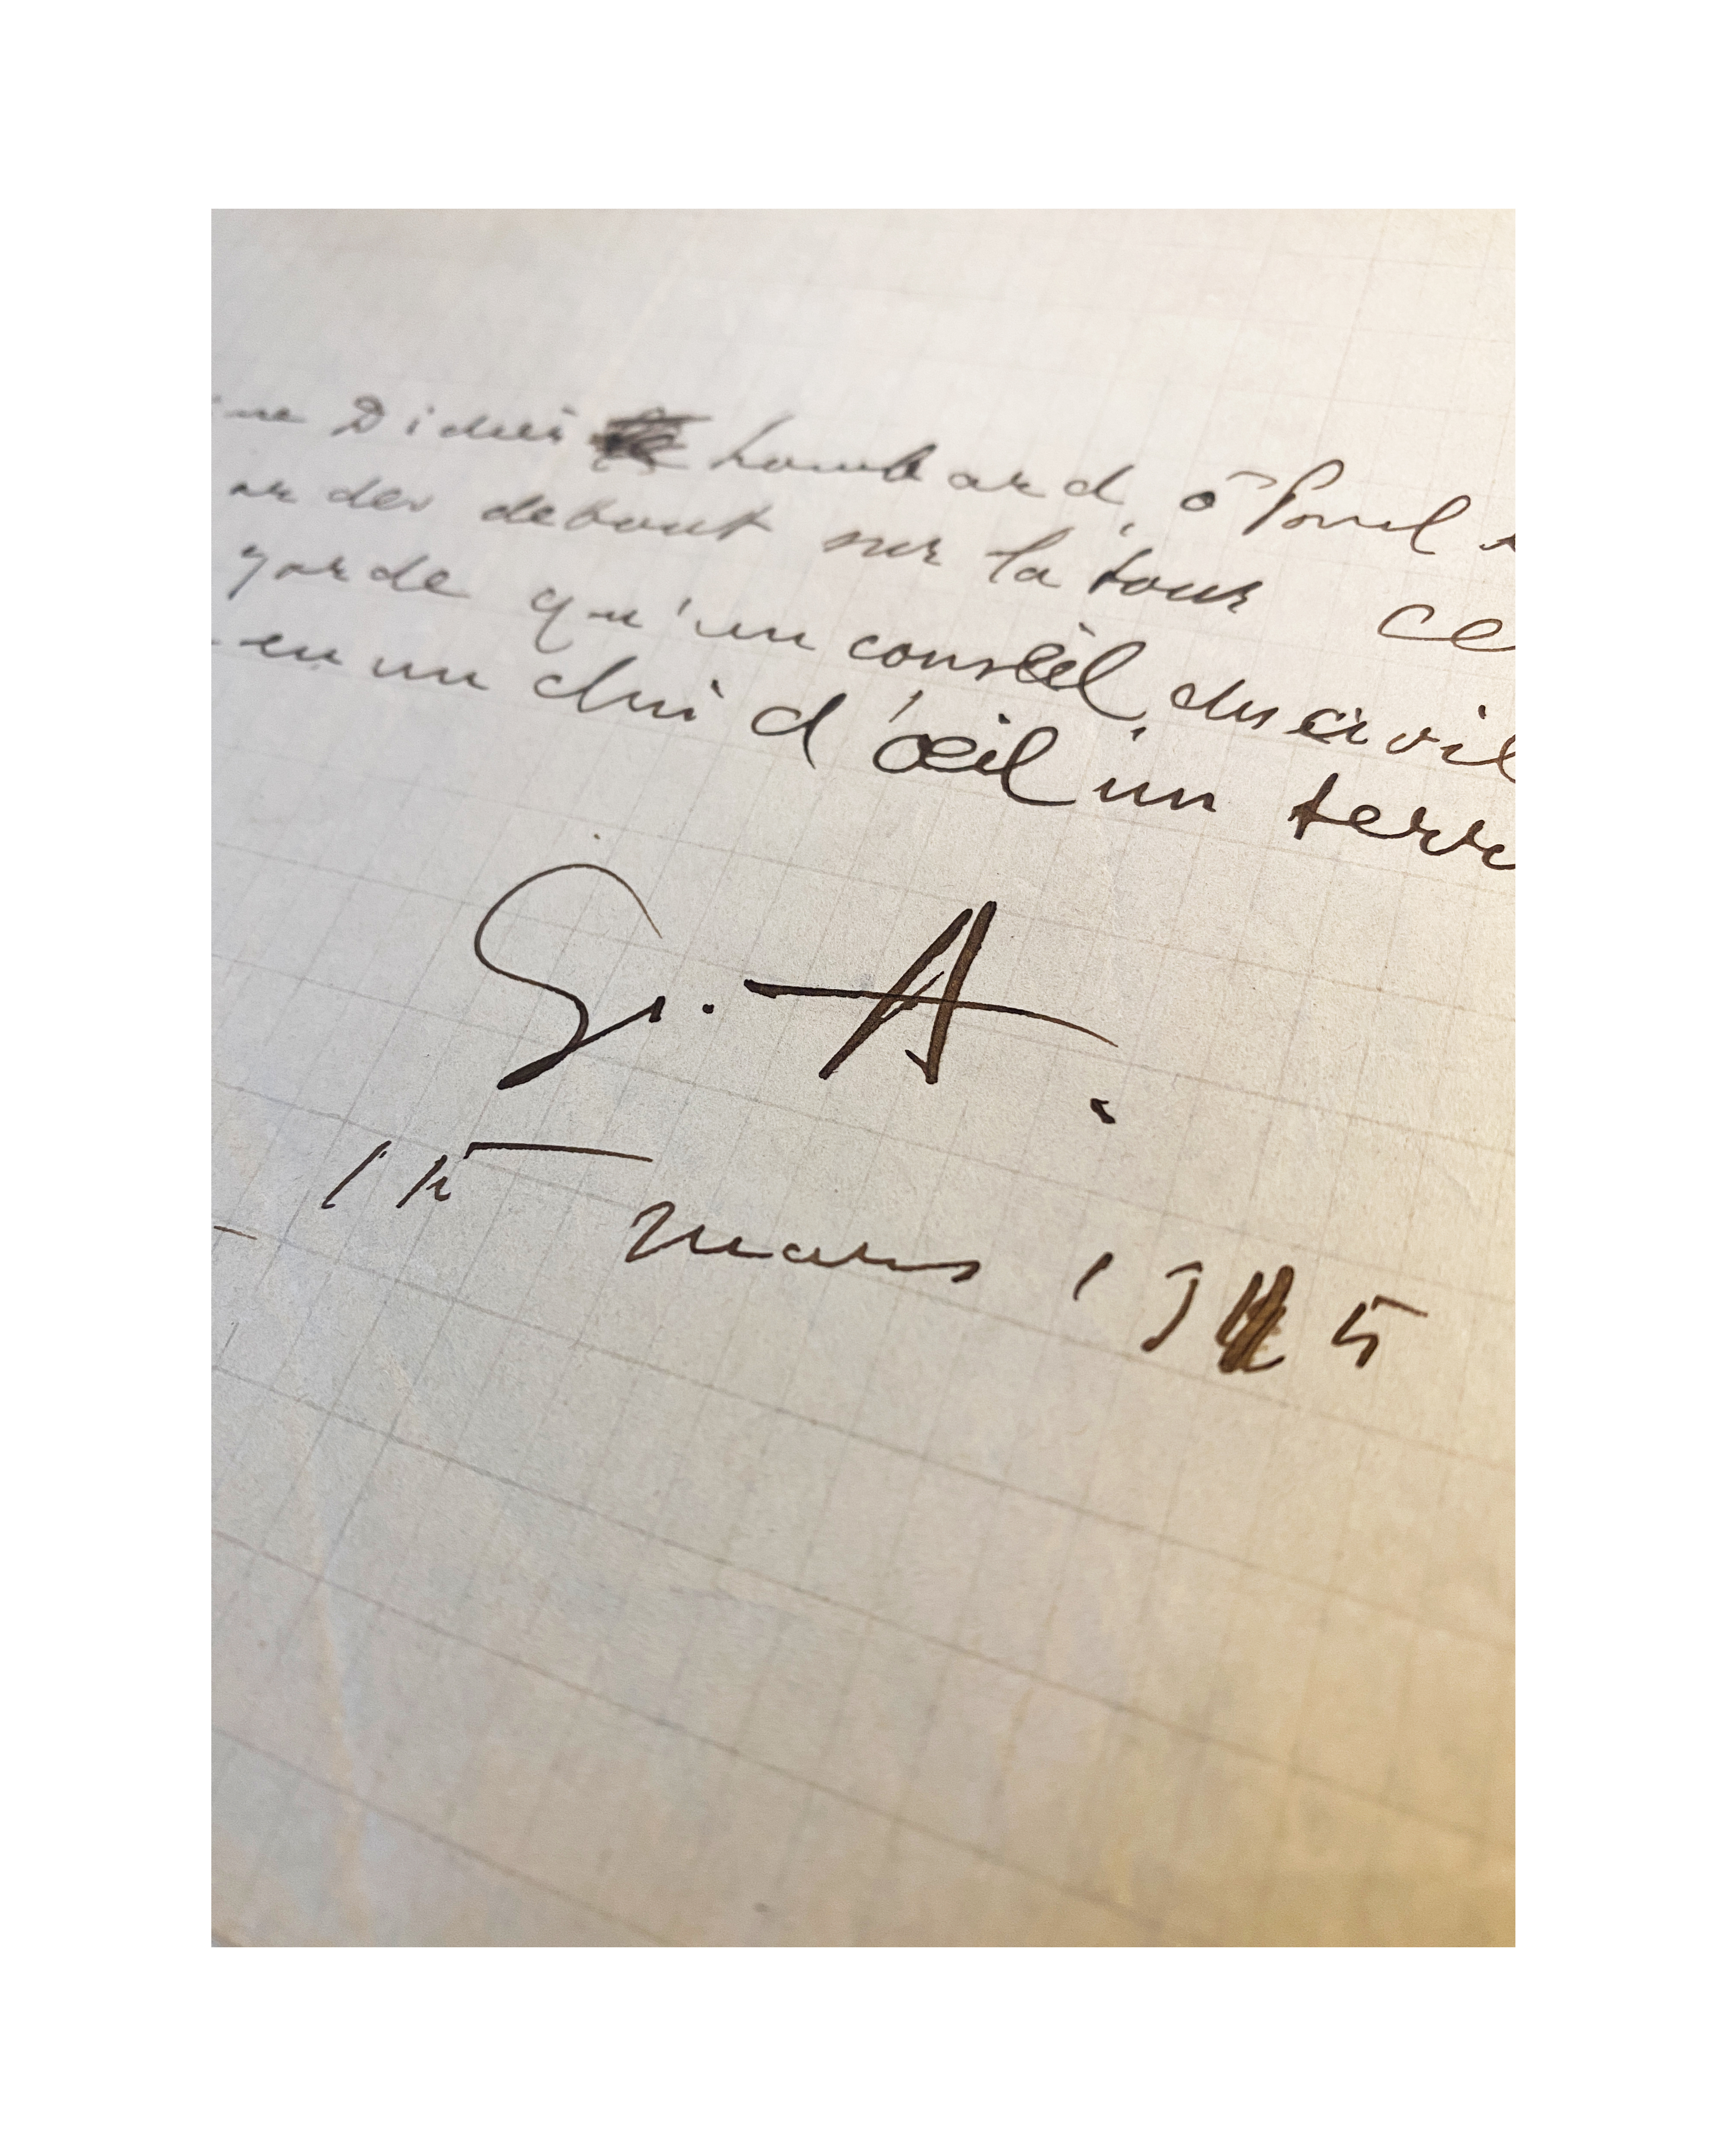 Didier Lombard, ô Ponel
ar des debout sur la tour ce
garde qu'un conseil du civil
en un clin d'œil un terre
G. A.
15 mars 1915